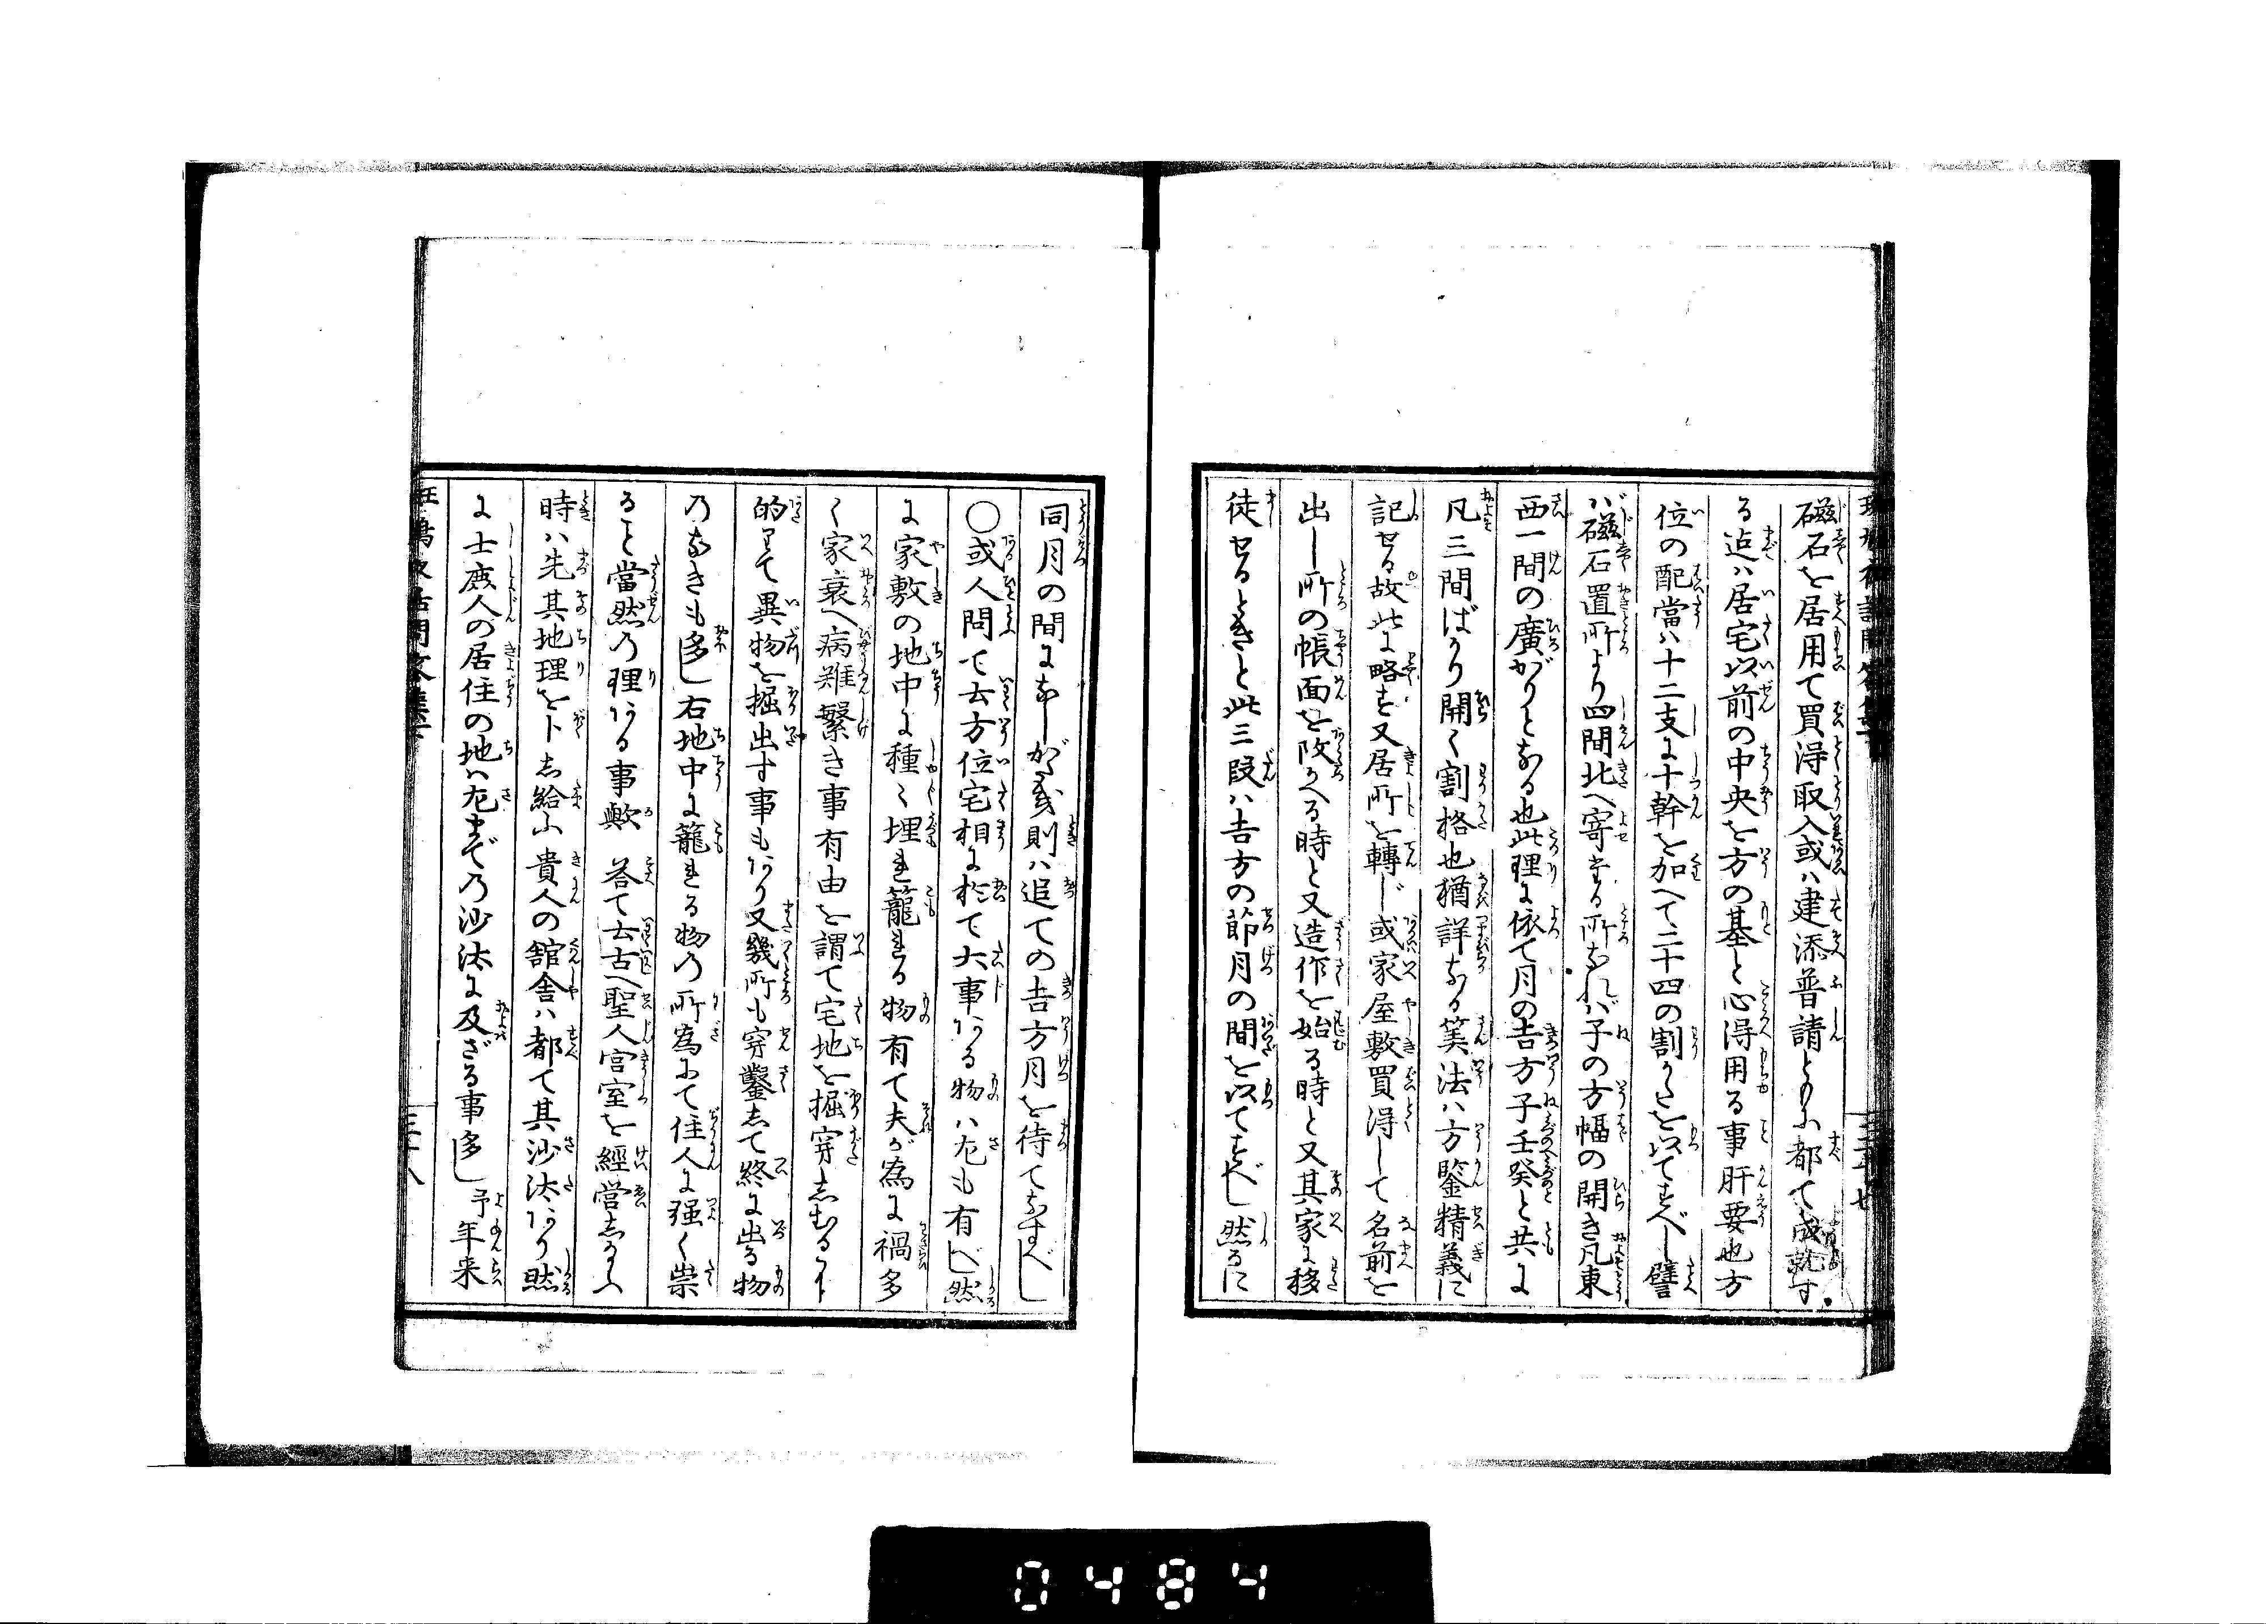 磁石を居用て買得取入或ハ建添普請とも小都て成就す
る迠ハ居宅以前の中央を方の基と心得用る事肝要也方
位の配當ハ十二支に十幹を加へて二十四の割を以てすべし譬
バ磁石置所より四間北へ寄たる所なれバ子の方幅の開き凡東
西一間の廣がりとなる也此理に依て月の吉方子壬癸と共に
凡三間ばかり開く割格也猶詳なる筭法ハ方鑒精義に
記せる故此に略す又居所を轉じ或家屋敷買得して名前を
出し所の帳面を改かへる時と又造作を始る時と又其家に移
徒せるときと此三段ハ吉方の節月の間を以てすべし然るに
同月の間になしがたき則ハ追ての吉方月を待てなすべし
〇或人問て云方位宅相に於て大事ある物ハ左も有べし然
に家敷の地中に種〻埋れ籠れる物有て夫が為に禍多
く家衰へ病難繫き事有由を謂て宅地を掘穿しむるに
的りて異物を掘出す事もあり又幾所も穿鑿して終に出る物
のなきも多し右地中に籠れる物の所為にて住人に强く祟
ると當然の理ある事歟 答て云古へ聖人宮室を經営し
時ハ先其地理を卜し給ふ貴人の舘舎ハ都て其沙汰あり然
に士庻人の居住の地ハ左までの沙汰に及ざる事多し予年来
三十八
0484